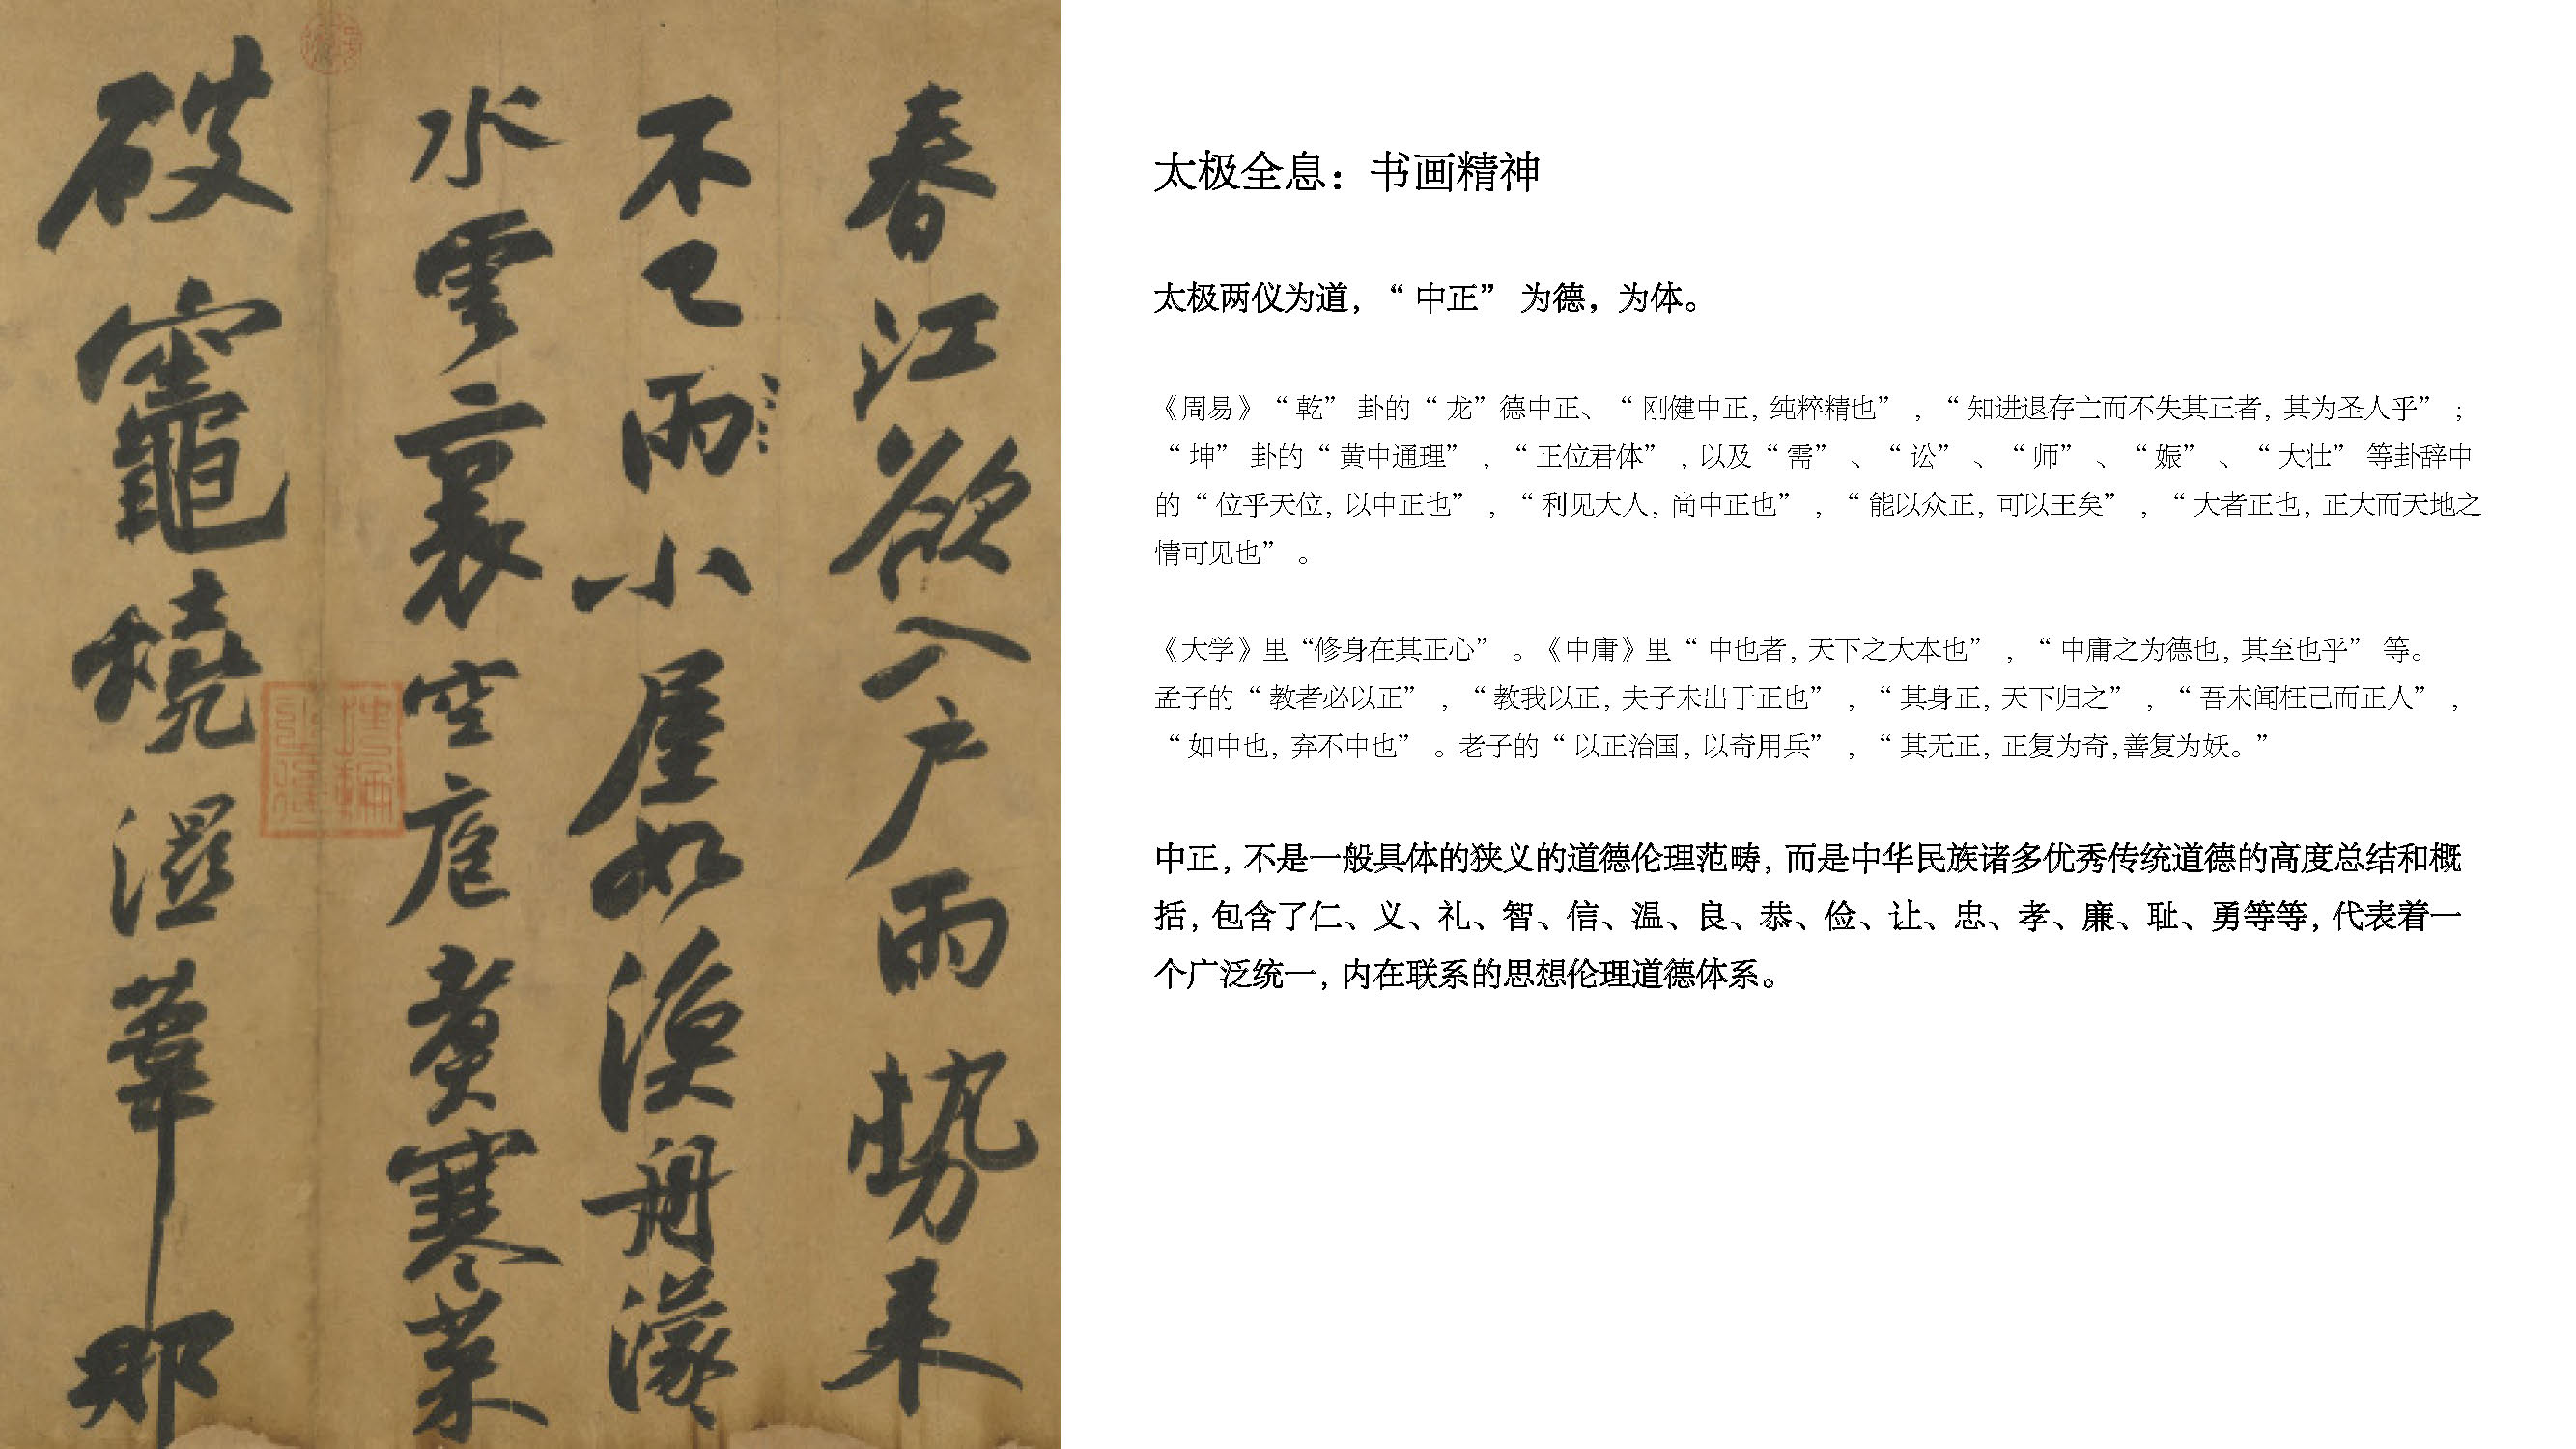 春江欲入户雨势来
不已雨小屋如渔舟濛
水云里空庖煮寒菜
破灶烧湿苇那
太极全息：书画精神
太极两仪为道，“中正” 为德，为体。
《周易》“乾” 卦的“龙”德中正、“刚健中正, 纯粹精也” , “知进退存亡而不失其正者, 其为圣人乎” ;
“坤” 卦的“黄中通理” , “正位君体” , 以及“需” 、“讼” 、“师” 、“娠” 、“大壮” 等卦辞中
的“位乎天位, 以中正也” , “利见大人, 尚中正也” , “能以众正, 可以王矣” , “大者正也, 正大而天地之
情可见也” 。
《大学》里“修身在其正心” 。《中庸》里“中也者, 天下之大本也” , “中庸之为德也, 其至也乎” 等。
孟子的“教者必以正” , “教我以正, 夫子未出于正也” , “其身正, 天下归之” , “吾未闻枉己而正人” ,
“如中也, 弃不中也” 。老子的“以正治国, 以奇用兵” , “其无正, 正复为奇,善复为妖。”
中正, 不是一般具体的狭义的道德伦理范畴, 而是中华民族诸多优秀传统道德的高度总结和概
括, 包含了仁、义、礼、智、信、温、良、恭、俭、让、忠、孝、廉、耻、勇等等, 代表着一
个广泛统一, 内在联系的思想伦理道德体系。